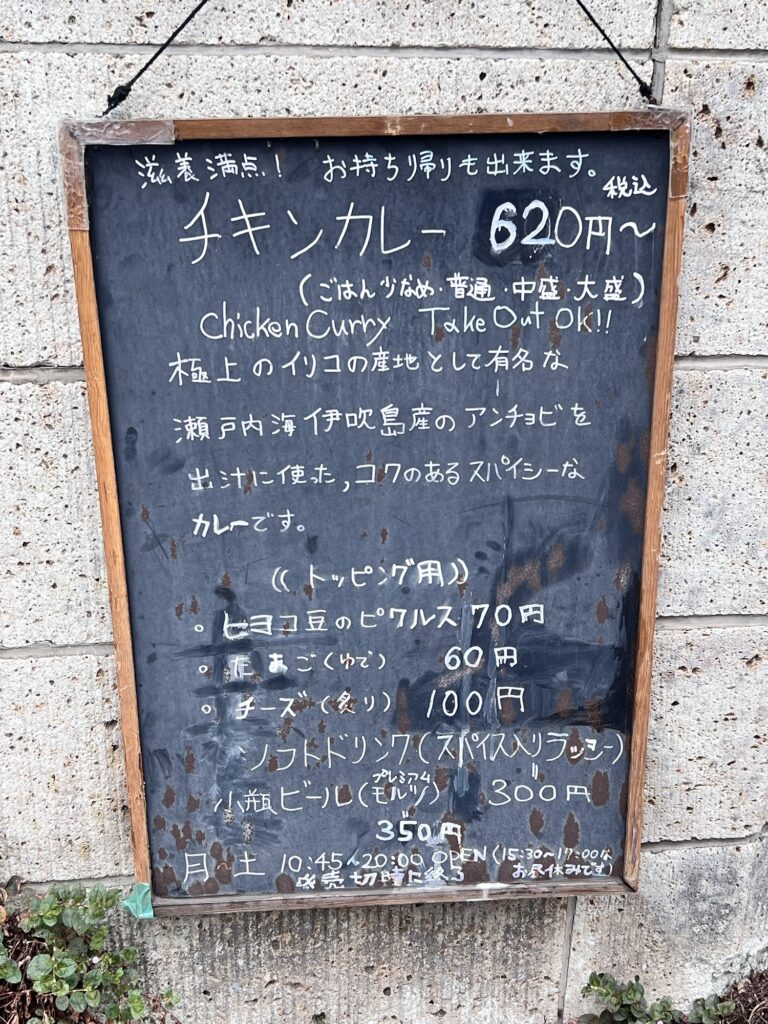 滋養満点! お持ち帰りも出来ます。
税込
チキンカレー 620円〜
(ごはん少なめ・普通・中盛・大盛)
Chicken Curry Take Out OK!!
極上のイリコの産地として有名な
瀬戸内海伊吹島産のアンチョビを
出汁に使った,コクのあるスパイシーな
カレーです。
((トッピング用))
。ヒヨコ豆のピクルス 70円
。たまご(ゆで) 60円
。チーズ(炙り) 100円
ソフトドリンク(スパイス入りラッシー)
小瓶ビール(モルツ) 300円
プレミアム
350円
月〜土 10:45〜20:00 OPEN (15:30〜17:00は
お昼休みです)
※売切時に終了